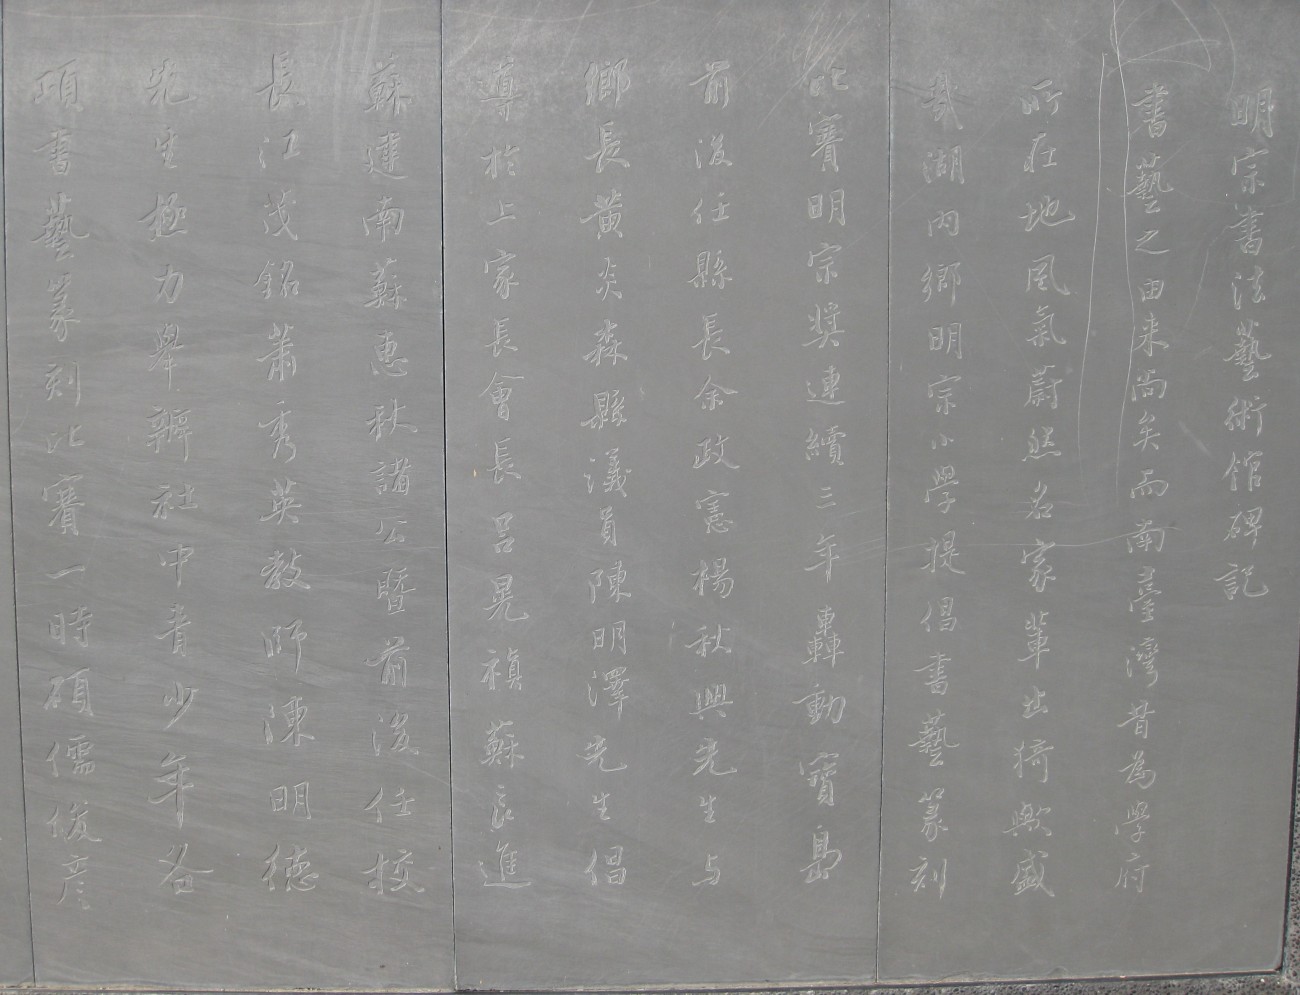 明宗書法藝術館碑記
書藝之由来尚矣而南臺灣昔為學府
所在地風氣蔚然名家輩出猗歟盛
哉湖內鄉明宗小學提倡書藝篆刻
比賽明宗獎連續三年轟動寶島
前後任縣長余政憲楊秋興先生与
鄉長黃炎森縣議員陳明澤先生倡
導於上家長會長呂晃禎蘇良進
蘇連南蘇惠秋諸公暨前後任校
長江茂銘蕭秀英教師陳明德
先生極力舉辦社中青少年各
項書藝篆刻比賽一時碩儒俊彥